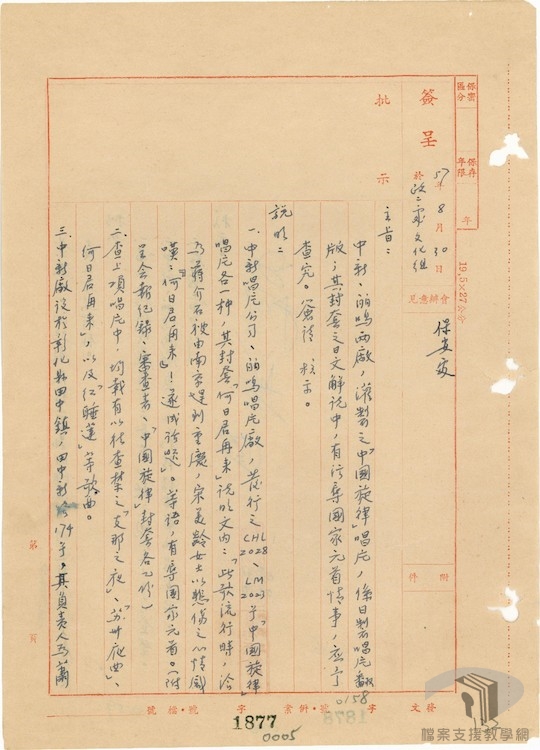 保密區分
保存年限
年
19.5×27公分
簽呈
57年8月30日
於政二處文化組
會辦意見
保安處
附件
批示
主旨:
中新、鳴鳴兩廠,灌製之「中國旋律」唱片,係日製唱片翻
版,其封套之日文解說中,有污辱國家元首情事,應予
查究。簽請 核示。
說明:
一、中新唱片公司、鳴鳴唱片廠,發行之CHL2028、LM2003號「中國旋律」
唱片各一种,其封套「何日君再來」說明文內:「此歌流行時,洽
為蔣介石被由南京趕到重慶,宋美齡女士以悲傷之心情感
嘆:何日君再來!遂成話題」。等語,有辱國家元首。(附
呈会報紀錄、審查表、「中國旋律」封套各乙份)
二、查上項唱片中,均載有以往查禁之「支那之夜」、「苏州夜曲」、
「何日君再來」,以及「紅睡蓮」等歌曲。
三、中新廠設於彰化縣田中鎮,田中新路174号,其負責人為蕭
第 頁
發文 字 號
0158
案 併 號
檔 號 字 號
1878
1877
0005
檔案支援教學網